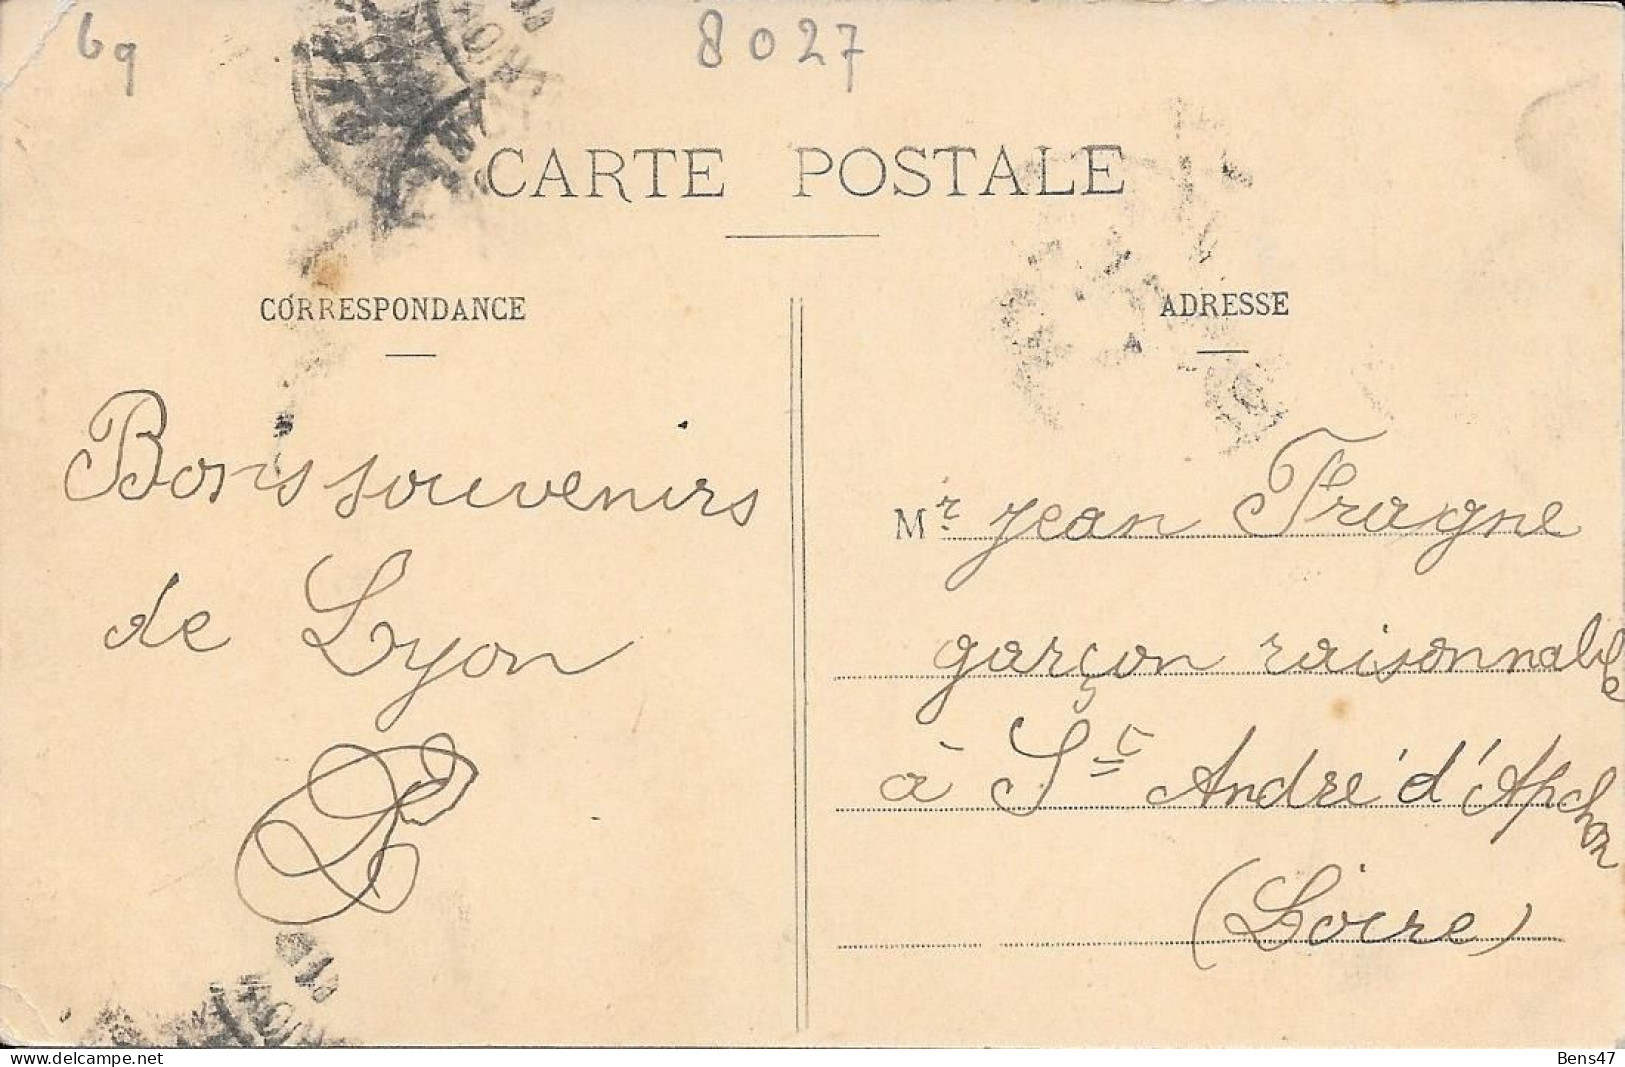 69
8027
CARTE POSTALE
CORRESPONDANCE
ADRESSE
Bons souvenirs
de Lyon
Mr Jean Fragne
garçon raisonnable
à St André d'Apchon
(Loire)
Bens47